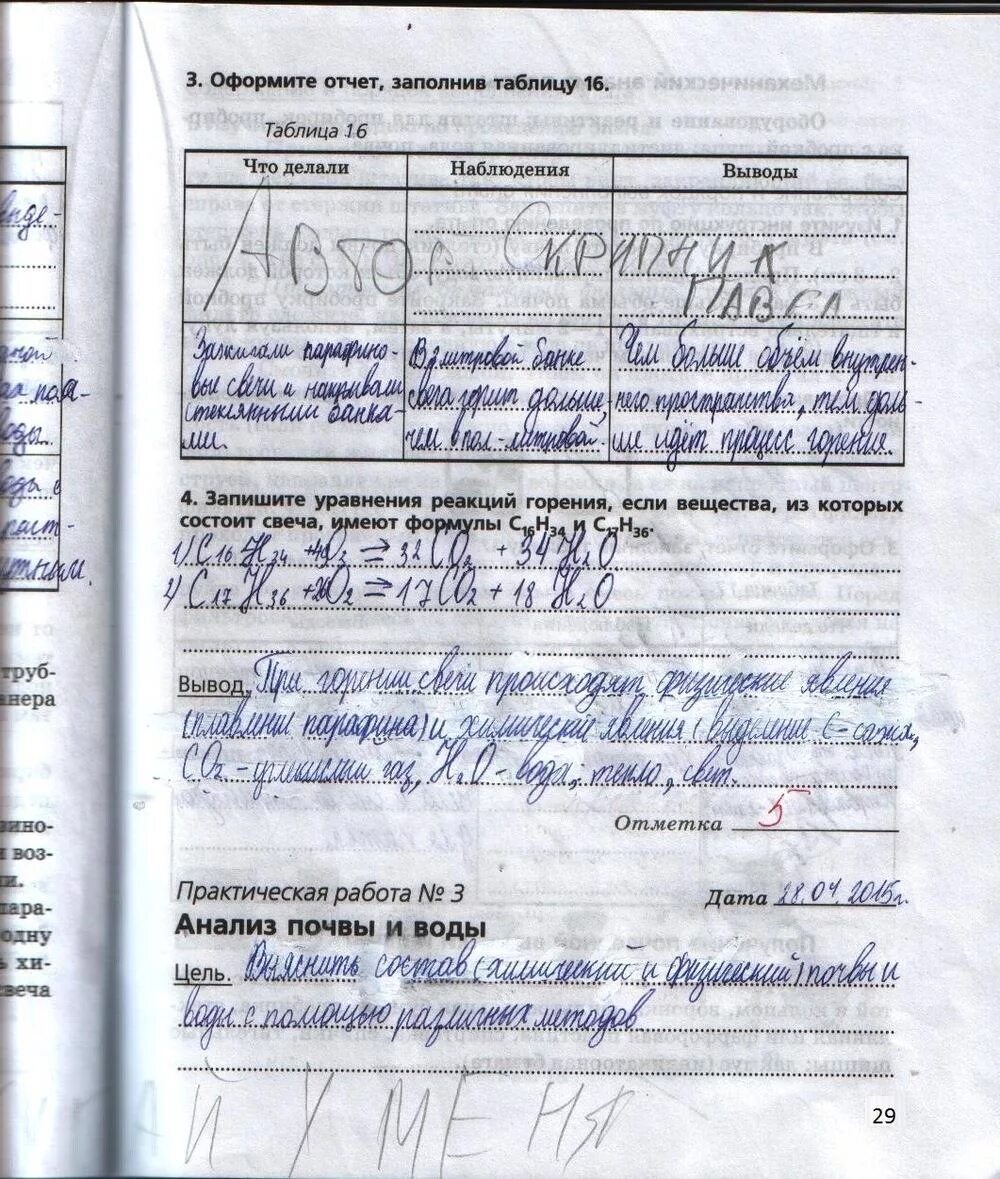 3. Оформите отчет, заполнив таблицу 16.
Таблица 16
Что делали Наблюдения Выводы
АВТОР СКРИПНИК
ПАВЕЛ
Зажигали парафино-
вые свечи и накрывали
стеклянными банка-
ми.
В 3 литровой банке
свеча горит дольше,
чем в пол-литровой.
Чем больше объём внутрен-
него пространства, тем доль-
ше идёт процесс горения.
4. Запишите уравнения реакций горения, если вещества, из которых
состоит свеча, имеют формулы C₁₆H₃₄ и C₁₇H₃₆.
1) C₁₆H₃₄ + O₂ ⇒ 32CO₂ + 34H₂O
2) C₁₇H₃₆ + O₂ ⇒ 17CO₂ + 18H₂O
Вывод. При горении свечи происходят физические явления
(плавление парафина) и химические явления (выделение C-сажа,
CO₂ - углекислый газ, H₂O - вода; тепло, свет.
Отметка 5
Практическая работа № 3 Дата 28.04.2015г.
Анализ почвы и воды
Цель. Выяснить состав (химический и физический) почвы и
воды с помощью различных методов
Й У МЕНЯ
29